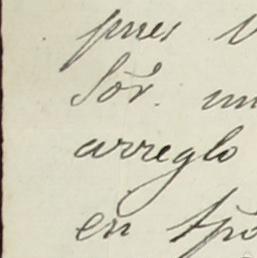 pues
Sõr. un
arreglo
en tpõ